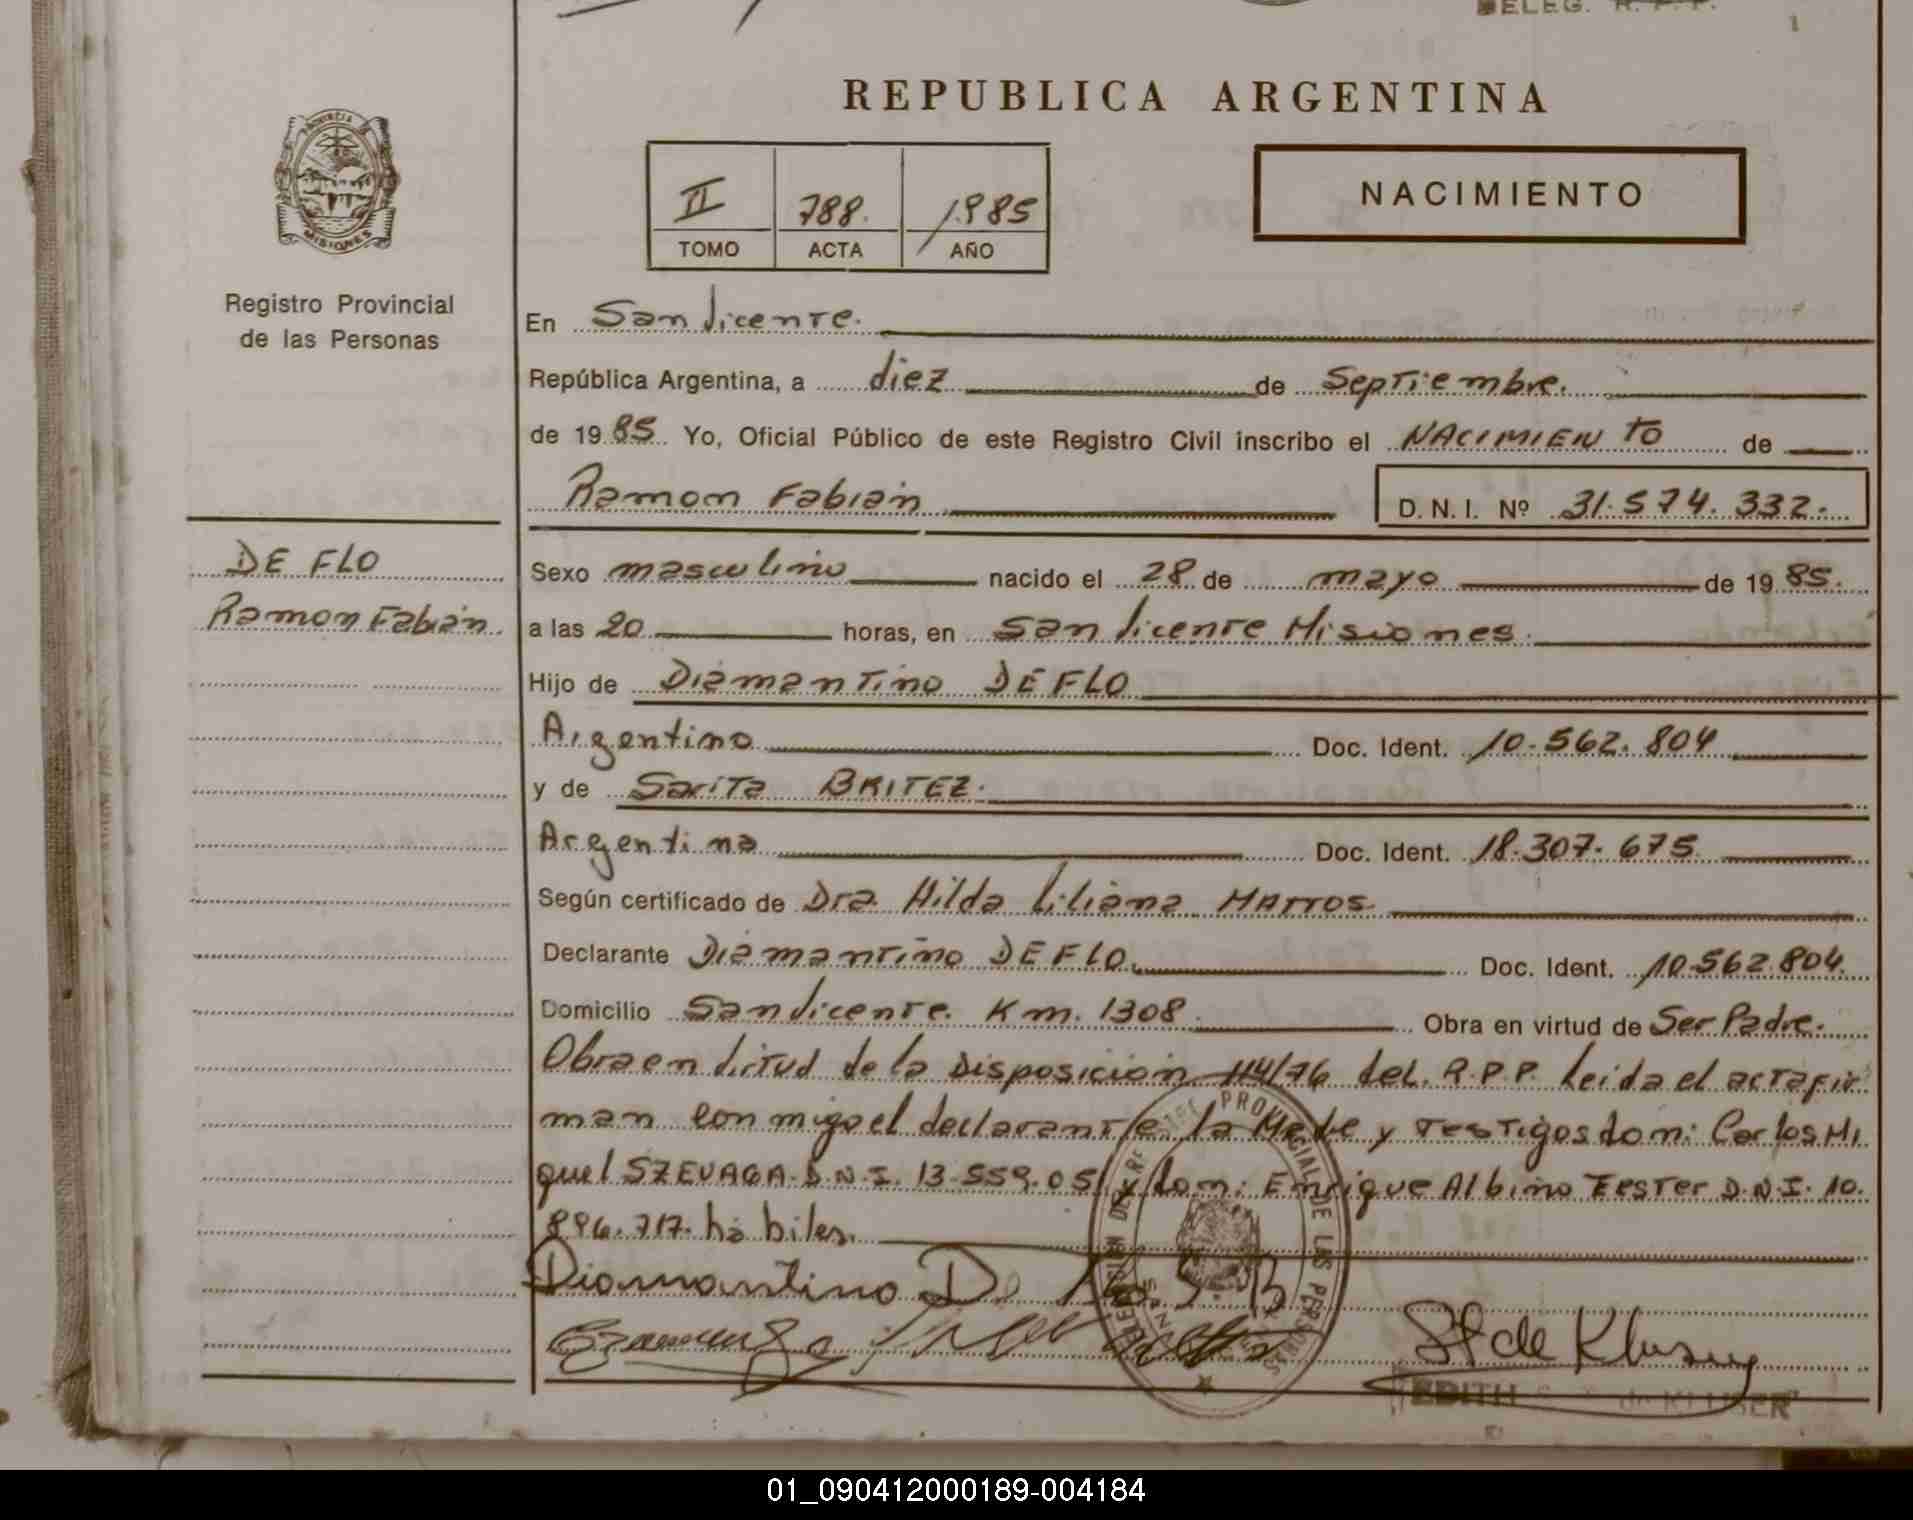 DELEG. R.P.P.
1
REPUBLICA ARGENTINA
PROVINCIA DE
MISIONES
Registro Provincial
de las Personas
II 788. 1985
TOMO ACTA AÑO
NACIMIENTO
En San Vicente.
República Argentina, a diez de Septiembre.
de 1985 Yo, Oficial Público de este Registro Civil inscribo el NACIMIENTO de
Ramon Fabián D. N. I. Nº 31.574.332.
DE FLO
Ramon Fabián.
Sexo masculino nacido el 28 de mayo de 1985.
a las 20 horas, en San Vicente Misiones.
Hijo de Diamantino DE FLO
Argentino Doc. Ident. 10.562.804
y de Sarita BRITEZ.
Argentina Doc. Ident. 18.307.675
Según certificado de Dra. Hilda Liliana MATTOS
Declarante Diamantino DE FLO. Doc. Ident. 10.562.804.
Domicilio San Vicente. Km. 1308 Obra en virtud de Ser Padre.
Obra en Virtud de la Disposición 114/76 del R.P.P. Leida el acta fir
man conmigo el declarante la Madre y Testigos don: Carlos Mi
guel SZEVAGA D.N.I. 13.559.051 y don: Enrique Albino Fester D.N.I. 10.
896.717. hábiles.
Diamantino D. S B
DELEGACION DEL REGISTRO PROVINCIAL DE LAS PERSONAS
St de Kluser
EDITH de KLUSER
01_090412000189-004184